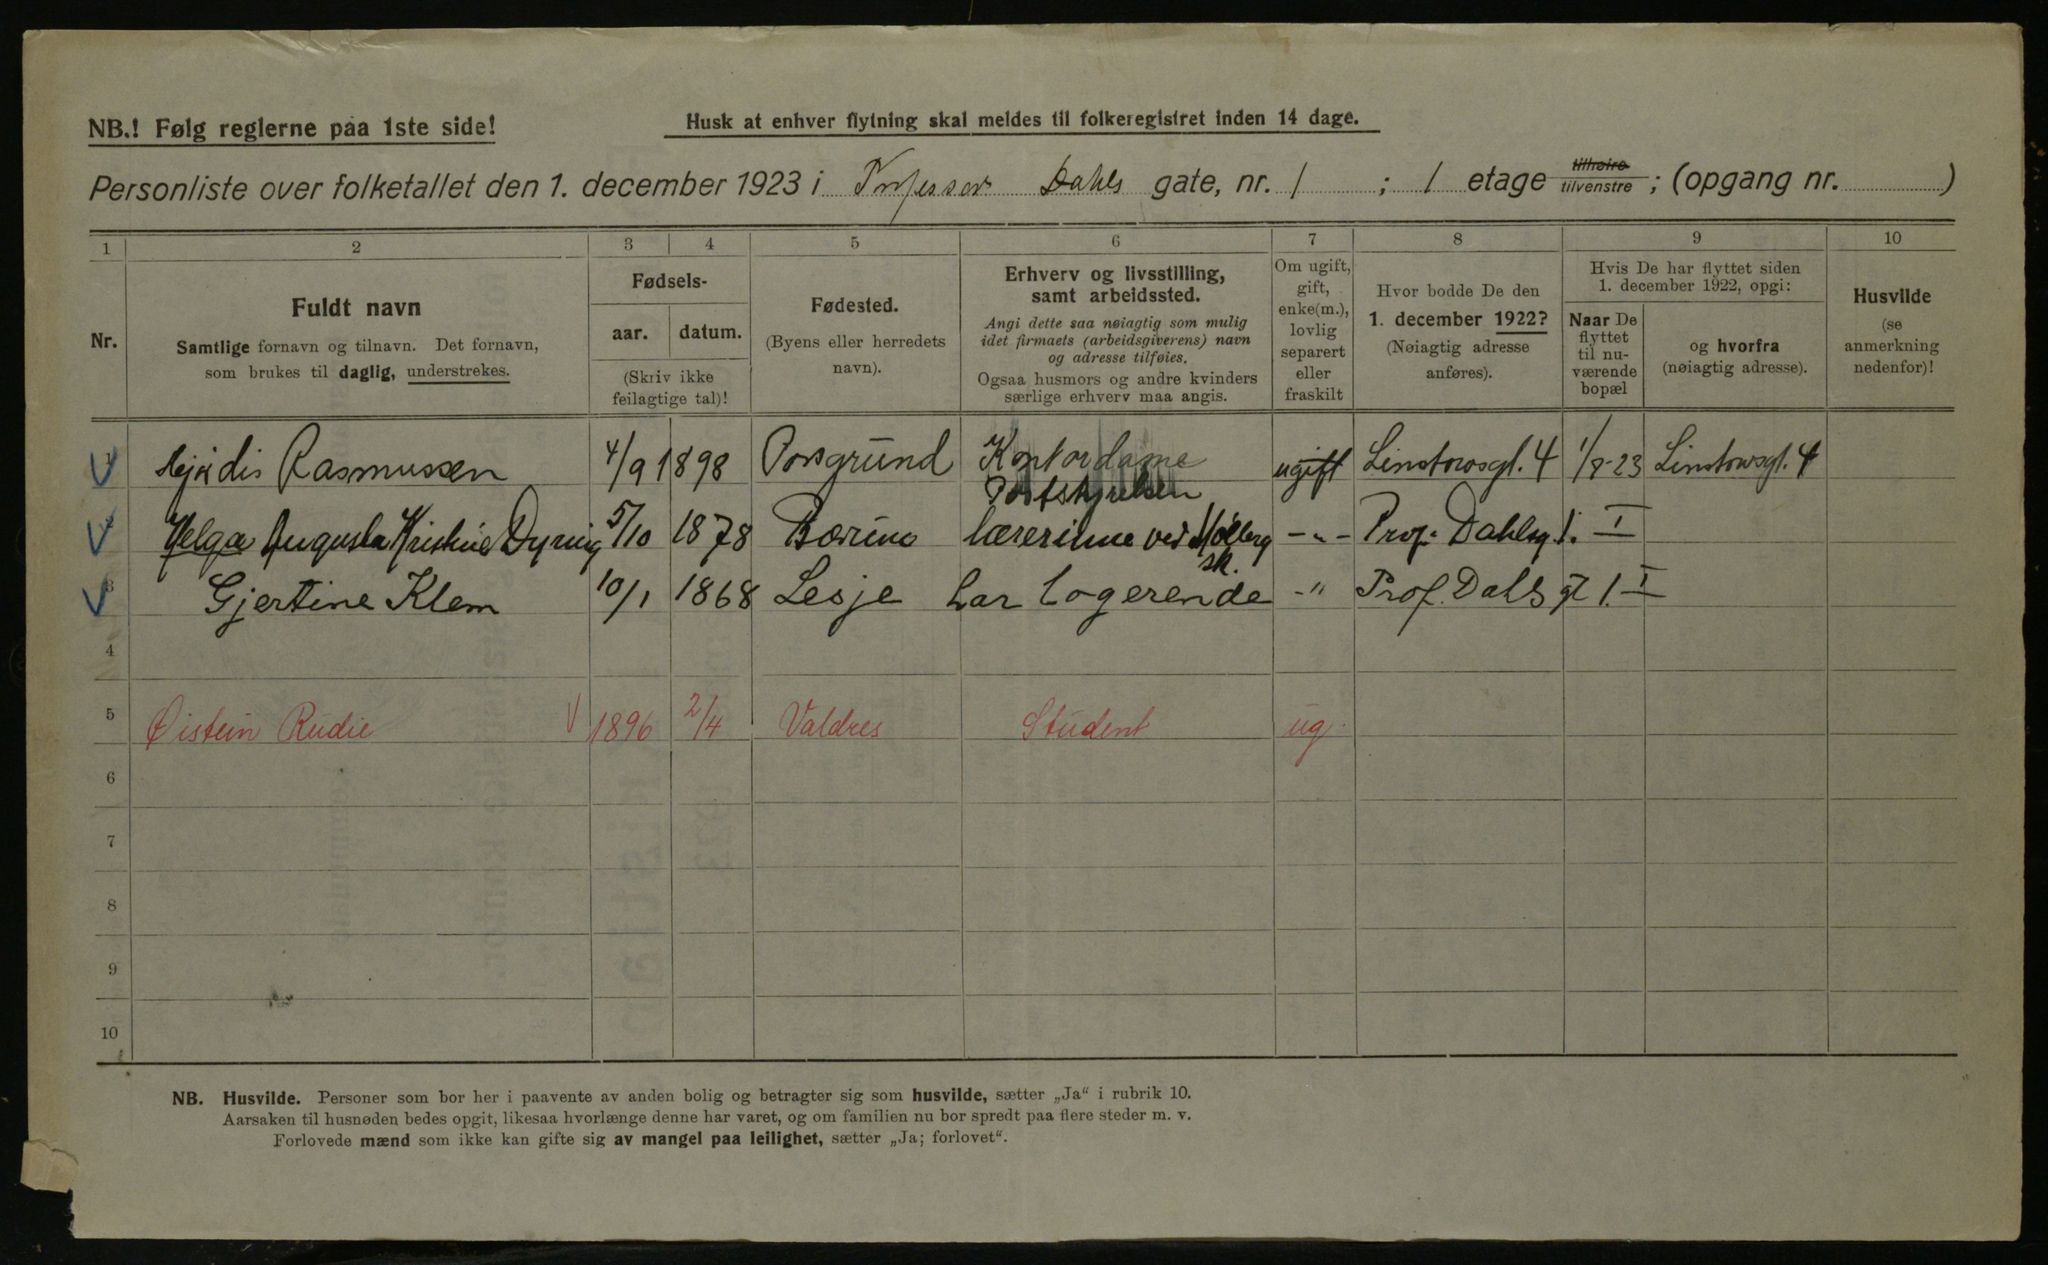 NB.! Følg reglerne paa 1ste side!
Husk at enhver flytning skal meldes til folkeregistret inden 14 dage.
Personliste over folketallet den 1. december 1923 i Professor Dahls gate, nr. 1 ; 1 etage tilhøire tilvenstre ; (opgang nr. )
1 2 3 4 5 6 7 8 9 10
Nr.
Fuldt navn
Samtlige fornavn og tilnavn. Det fornavn,
som brukes til daglig, understrekes.
Fødsels-
aar. datum.
(Skriv ikke
feilagtige tal)!
Fødested.
(Byens eller herredets
navn).
Erhverv og livsstilling,
samt arbeidssted.
Angi dette saa nøiagtig som mulig
idet firmaets (arbeidsgiverens) navn
og adresse tilføies.
Ogsaa husmors og andre kvinders
særlige erhverv maa angis.
Om ugift,
gift,
enke(m.),
lovlig
separert
eller
fraskilt
Hvor bodde De den
1. december 1922?
(Nøiagtig adresse
anføres).
Hvis De har flyttet siden
1. december 1922, opgi:
Naar De
flyttet
til nu-
værende
bopæl
og hvorfra
(nøiagtig adresse).
Husvilde
(se
anmerkning
nedenfor)!
Hjördis Rasmussen 4/9 1898 Porsgrund Kontordame ugift Linstowsgt. 4 1/8-23 Linstowsgt. 4
Poststyrelsen
Helga Augusta Kristine Dyring 5/10 1878 Bærum lærerinne ved Møllerg -"- Prof. Dahlsg 1. I
sk.
3 Gjertine Klem 10/1 1868 Lesje har logerende -" Prof. Dahls gt 1. I
4
5 Øistein Rudie V 1896 2/4 Valdres Student ug.
6
7
8
9
10
NB. Husvilde. Personer som bor her i paavente av anden bolig og betragter sig som husvilde, sætter „Ja“ i rubrik 10.
Aarsaken til husnøden bedes opgit, likesaa hvorlænge denne har varet, og om familien nu bor spredt paa flere steder m. v.
Forlovede mænd som ikke kan gifte sig av mangel paa leilighet, sætter „Ja; forlovet“.